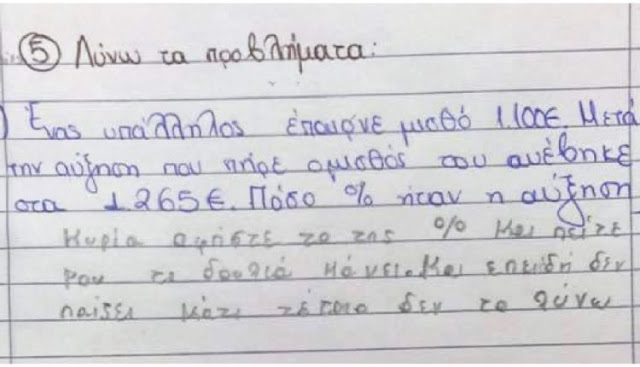 ⑤ Λύνω τα προβλήματα:
Ένας υπάλληλος έπαιρνε μισθό 1.100€. Μετά
την αύξηση που πήρε ο μισθός του ανέβηκε
στα 1.265€. Πόσο % ήταν η αύξηση
Κυρία αφήστε το της % και πείτε
μου τι δουλειά κάνει. Και επειδή δεν
παίζει κάτι τέτοιο δεν το λύνω